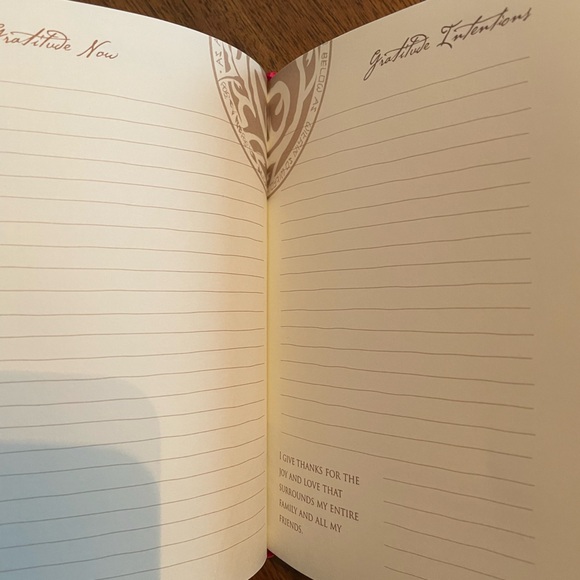 Gratitude Now
Gratitude Intentions
BELOW AS
I GIVE THANKS FOR THE
JOY AND LOVE THAT
SURROUNDS MY ENTIRE
FAMILY AND ALL MY
FRIENDS.